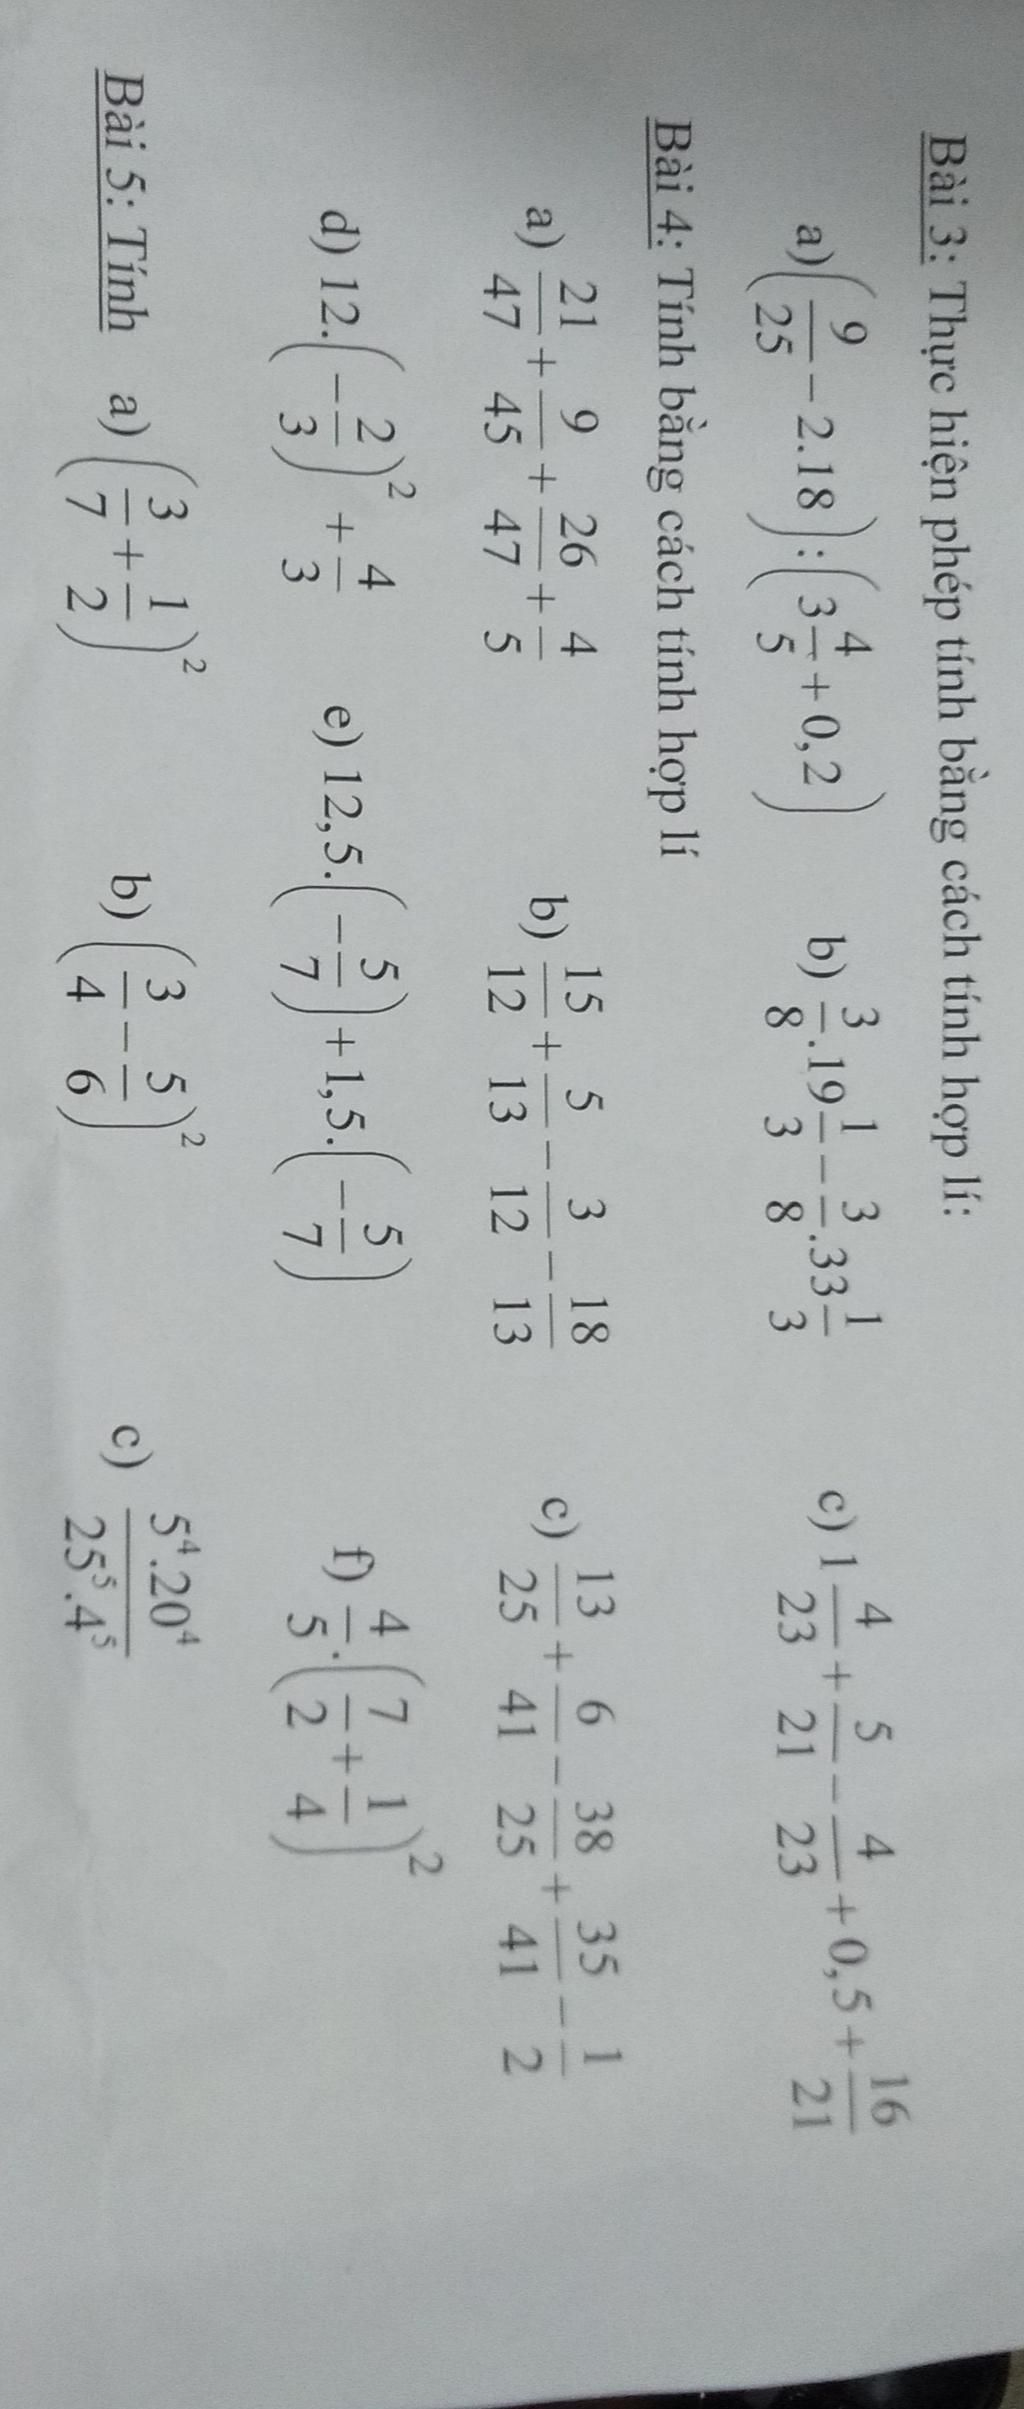 Bài 3: Thực hiện phép tính bằng cách tính hợp lí:
a) (9/25 − 2.18) : (3 4/5 + 0,2) b) 3/8 . 19 1/3 − 3/8 . 33 1/3 c) 1 4/23 + 5/21 − 4/23 + 0,5 + 16/21
Bài 4: Tính bằng cách tính hợp lí
a) 21/47 + 9/45 + 26/47 + 4/5 b) 15/12 + 5/13 − 3/12 − 18/13 c) 13/25 + 6/41 − 38/25 + 35/41 − 1/2
d) 12.(−2/3)² + 4/3 e) 12,5.(−5/7) + 1,5.(−5/7) f) 4/5 . (7/2 + 1/4)²
Bài 5: Tính a) (3/7 + 1/2)² b) (3/4 − 5/6)² c) 5⁴.20⁴/25⁵.4⁵